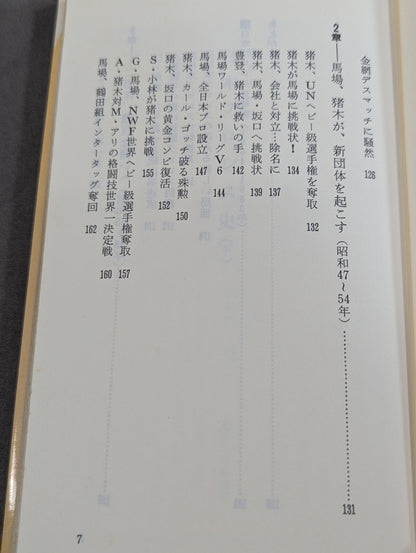 金網デスマッチに騒然 126
2章──馬場、猪木が、新団体を起こす（昭和47～54年）……………………131
猪木、UNヘビー級選手権を奪取 132
猪木が馬場に挑戦状！ 134
猪木、会社と対立…除名に 137
猪木、馬場・坂口へ挑戦状 139
豊登、猪木に救いの手 142
馬場ワールド・リーグV6 144
馬場、全日本プロ設立 147
猪木、カール・ゴッチ破る殊勲 150
猪木、坂口の黄金コンビ復活 152
S・小林が猪木に挑戦 155
G・馬場、NWF世界ヘビー級選手権奪取 157
A・猪木対M・アリの格闘技世界一決定戦 160
馬場、鶴田組インタータッグ奪回 162
7